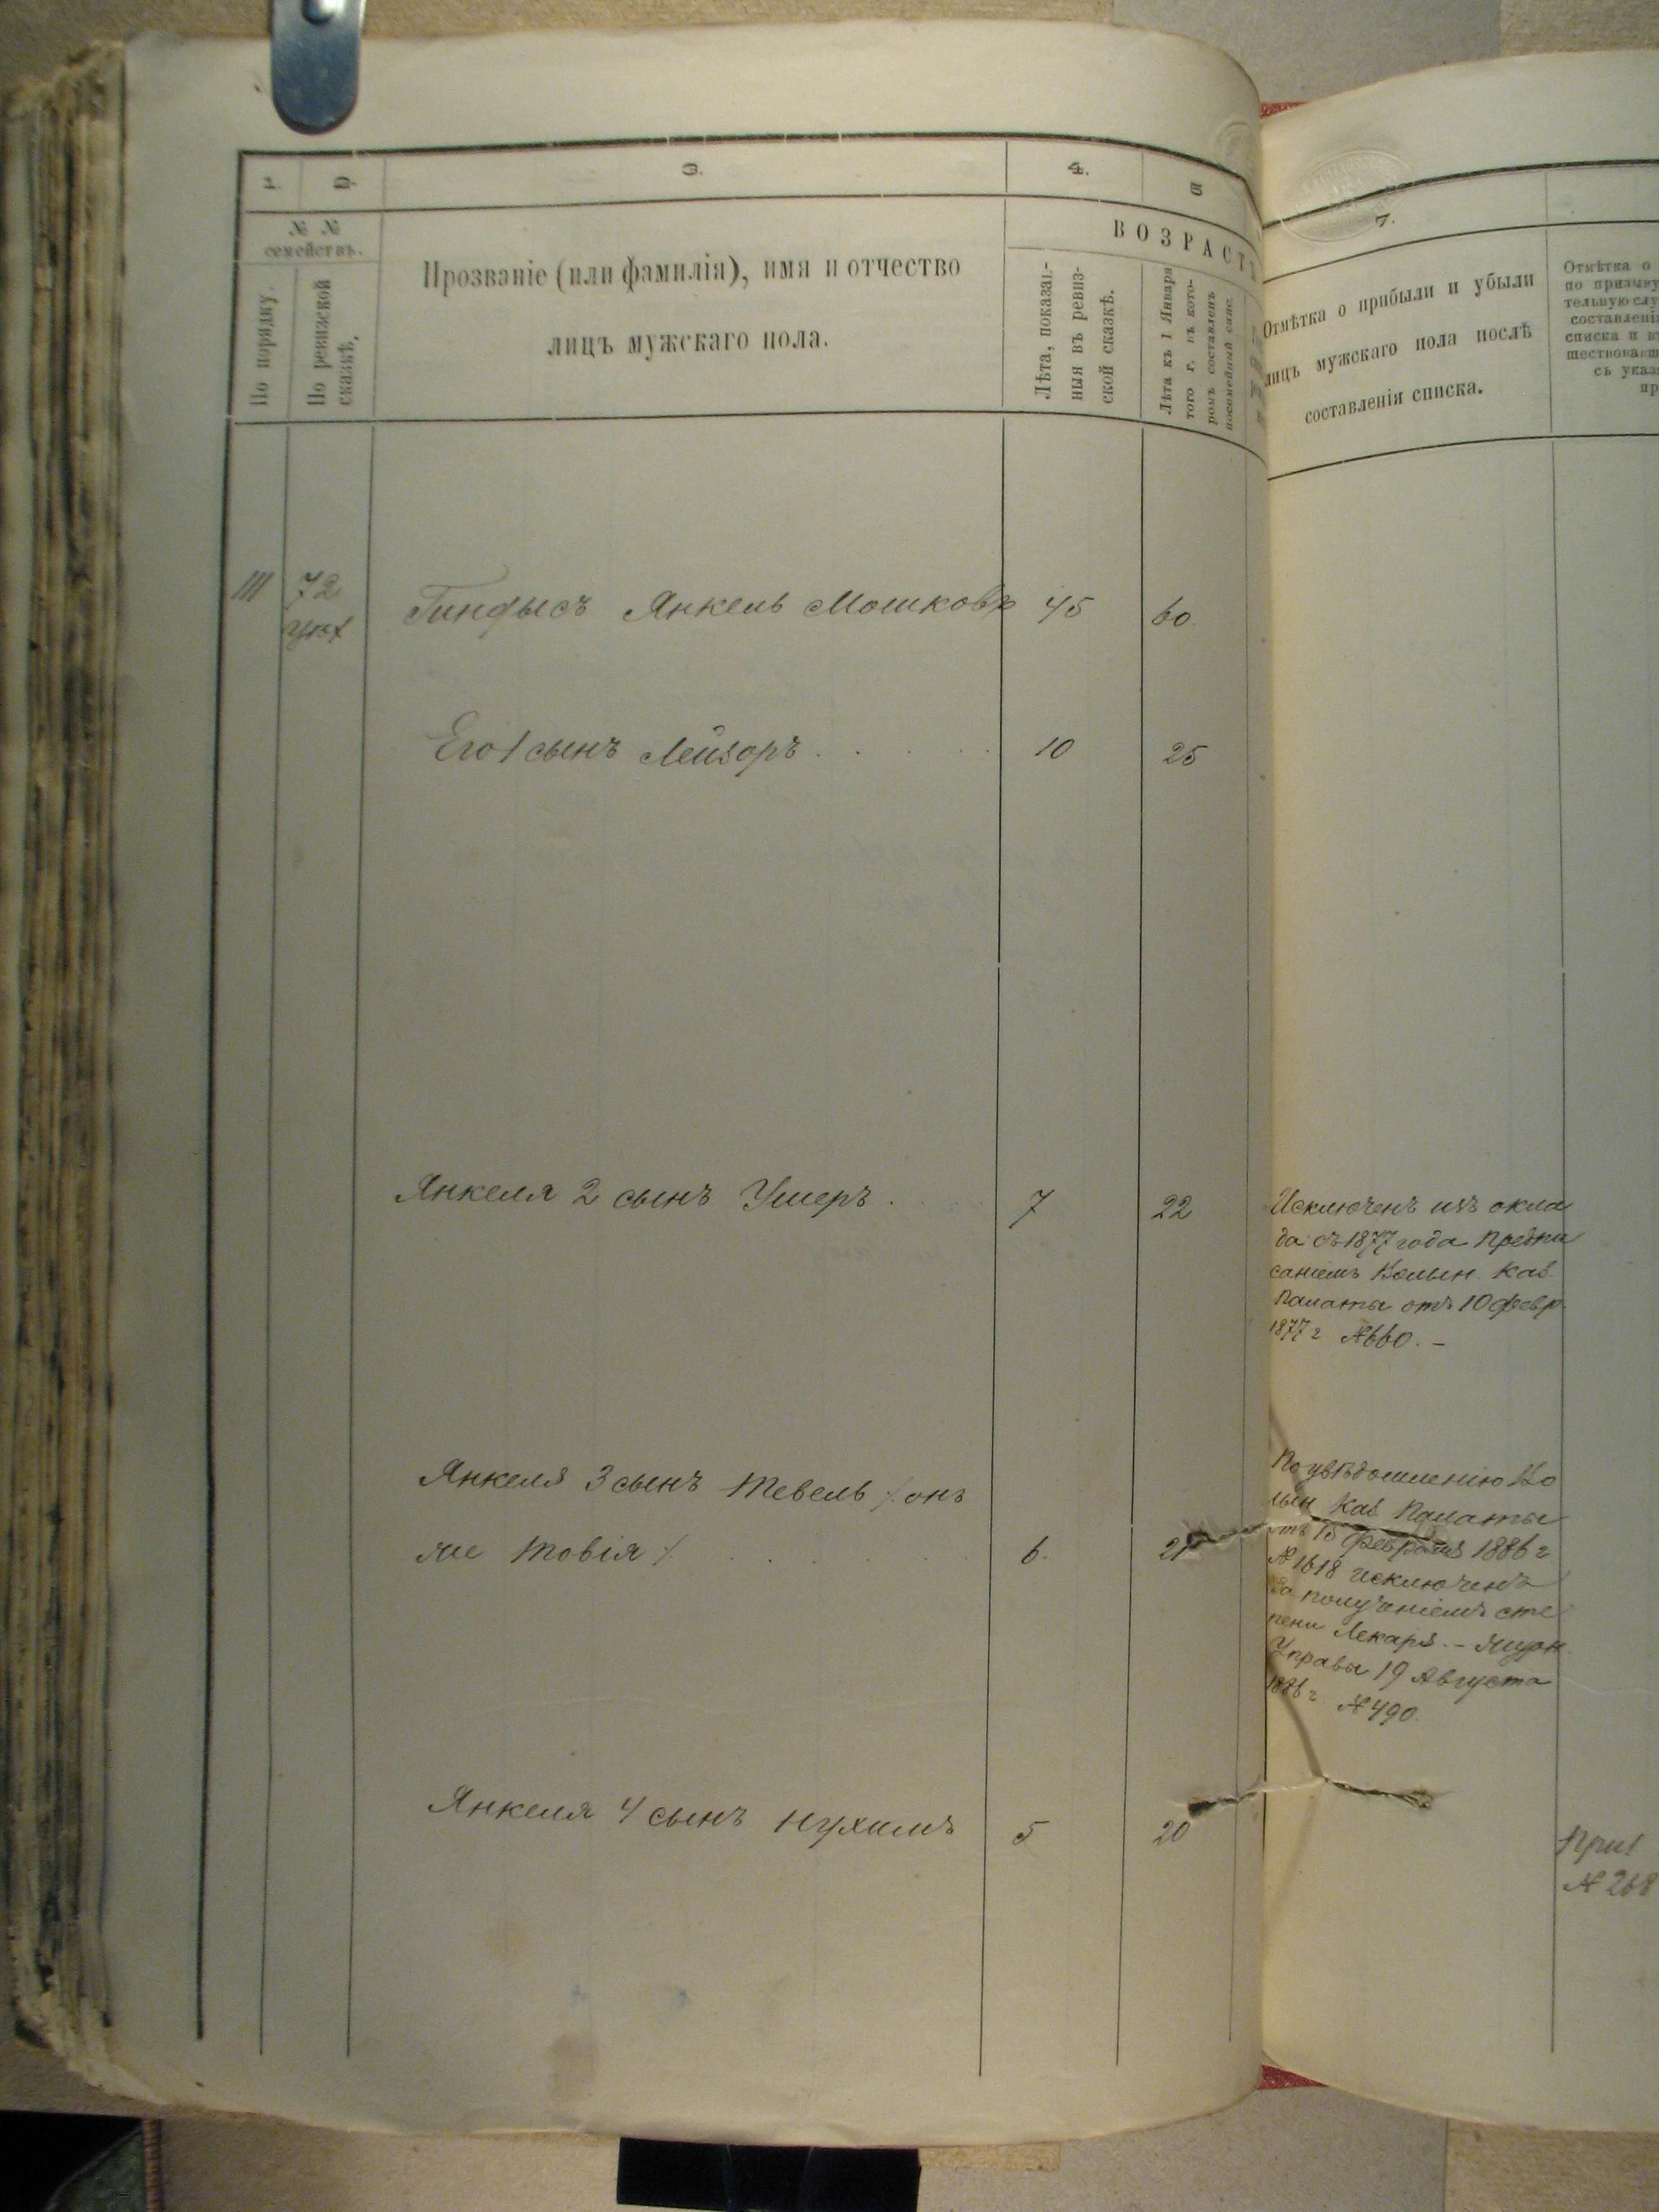 1.
2.
3.
4.
5
7.
№ №
семействъ.
По порядку.
По ревизской
сказкѣ.
Прозваніе (или фамилія), имя и отчество
лицъ мужскаго пола.
ВОЗРАСТЪ
Лѣта, показан-
ныя въ ревиз-
ской сказкѣ.
Лѣта къ 1 Января
того г. въ кото-
ромъ составленъ
посемейный спис.
Отмѣтка о прибыли и убыли
лицъ мужскаго пола послѣ
составленія списка.
Отмѣтка о
по призыву
тельную слу
составленія
списка и
шествовавш
съ указ
пр
111 72 Гиндысъ Янкель Мошков 45 60
Его 1 сынъ Лейзоръ 10 25
Янкеля 2 сынъ Ушеръ 7 22
Исключенъ изъ окла
да съ 1877 года Предпи
саніемъ Волын. Каз.
Палаты отъ 10 февр.
1877 г №660. –
Янкеля 3 сынъ Тевель /. онъ
же Товія ./ 6. 21
По увѣдомленію Во
лын Каз Палаты
отъ 15 февраля 1886 г
№ 1618 исключенъ
за полученіемъ сте
пени Лекаря. –
Управы 19 Августа
1886 г. № 490.
Янкеля 4 сынъ Нухимъ 5 20
При
№ 268